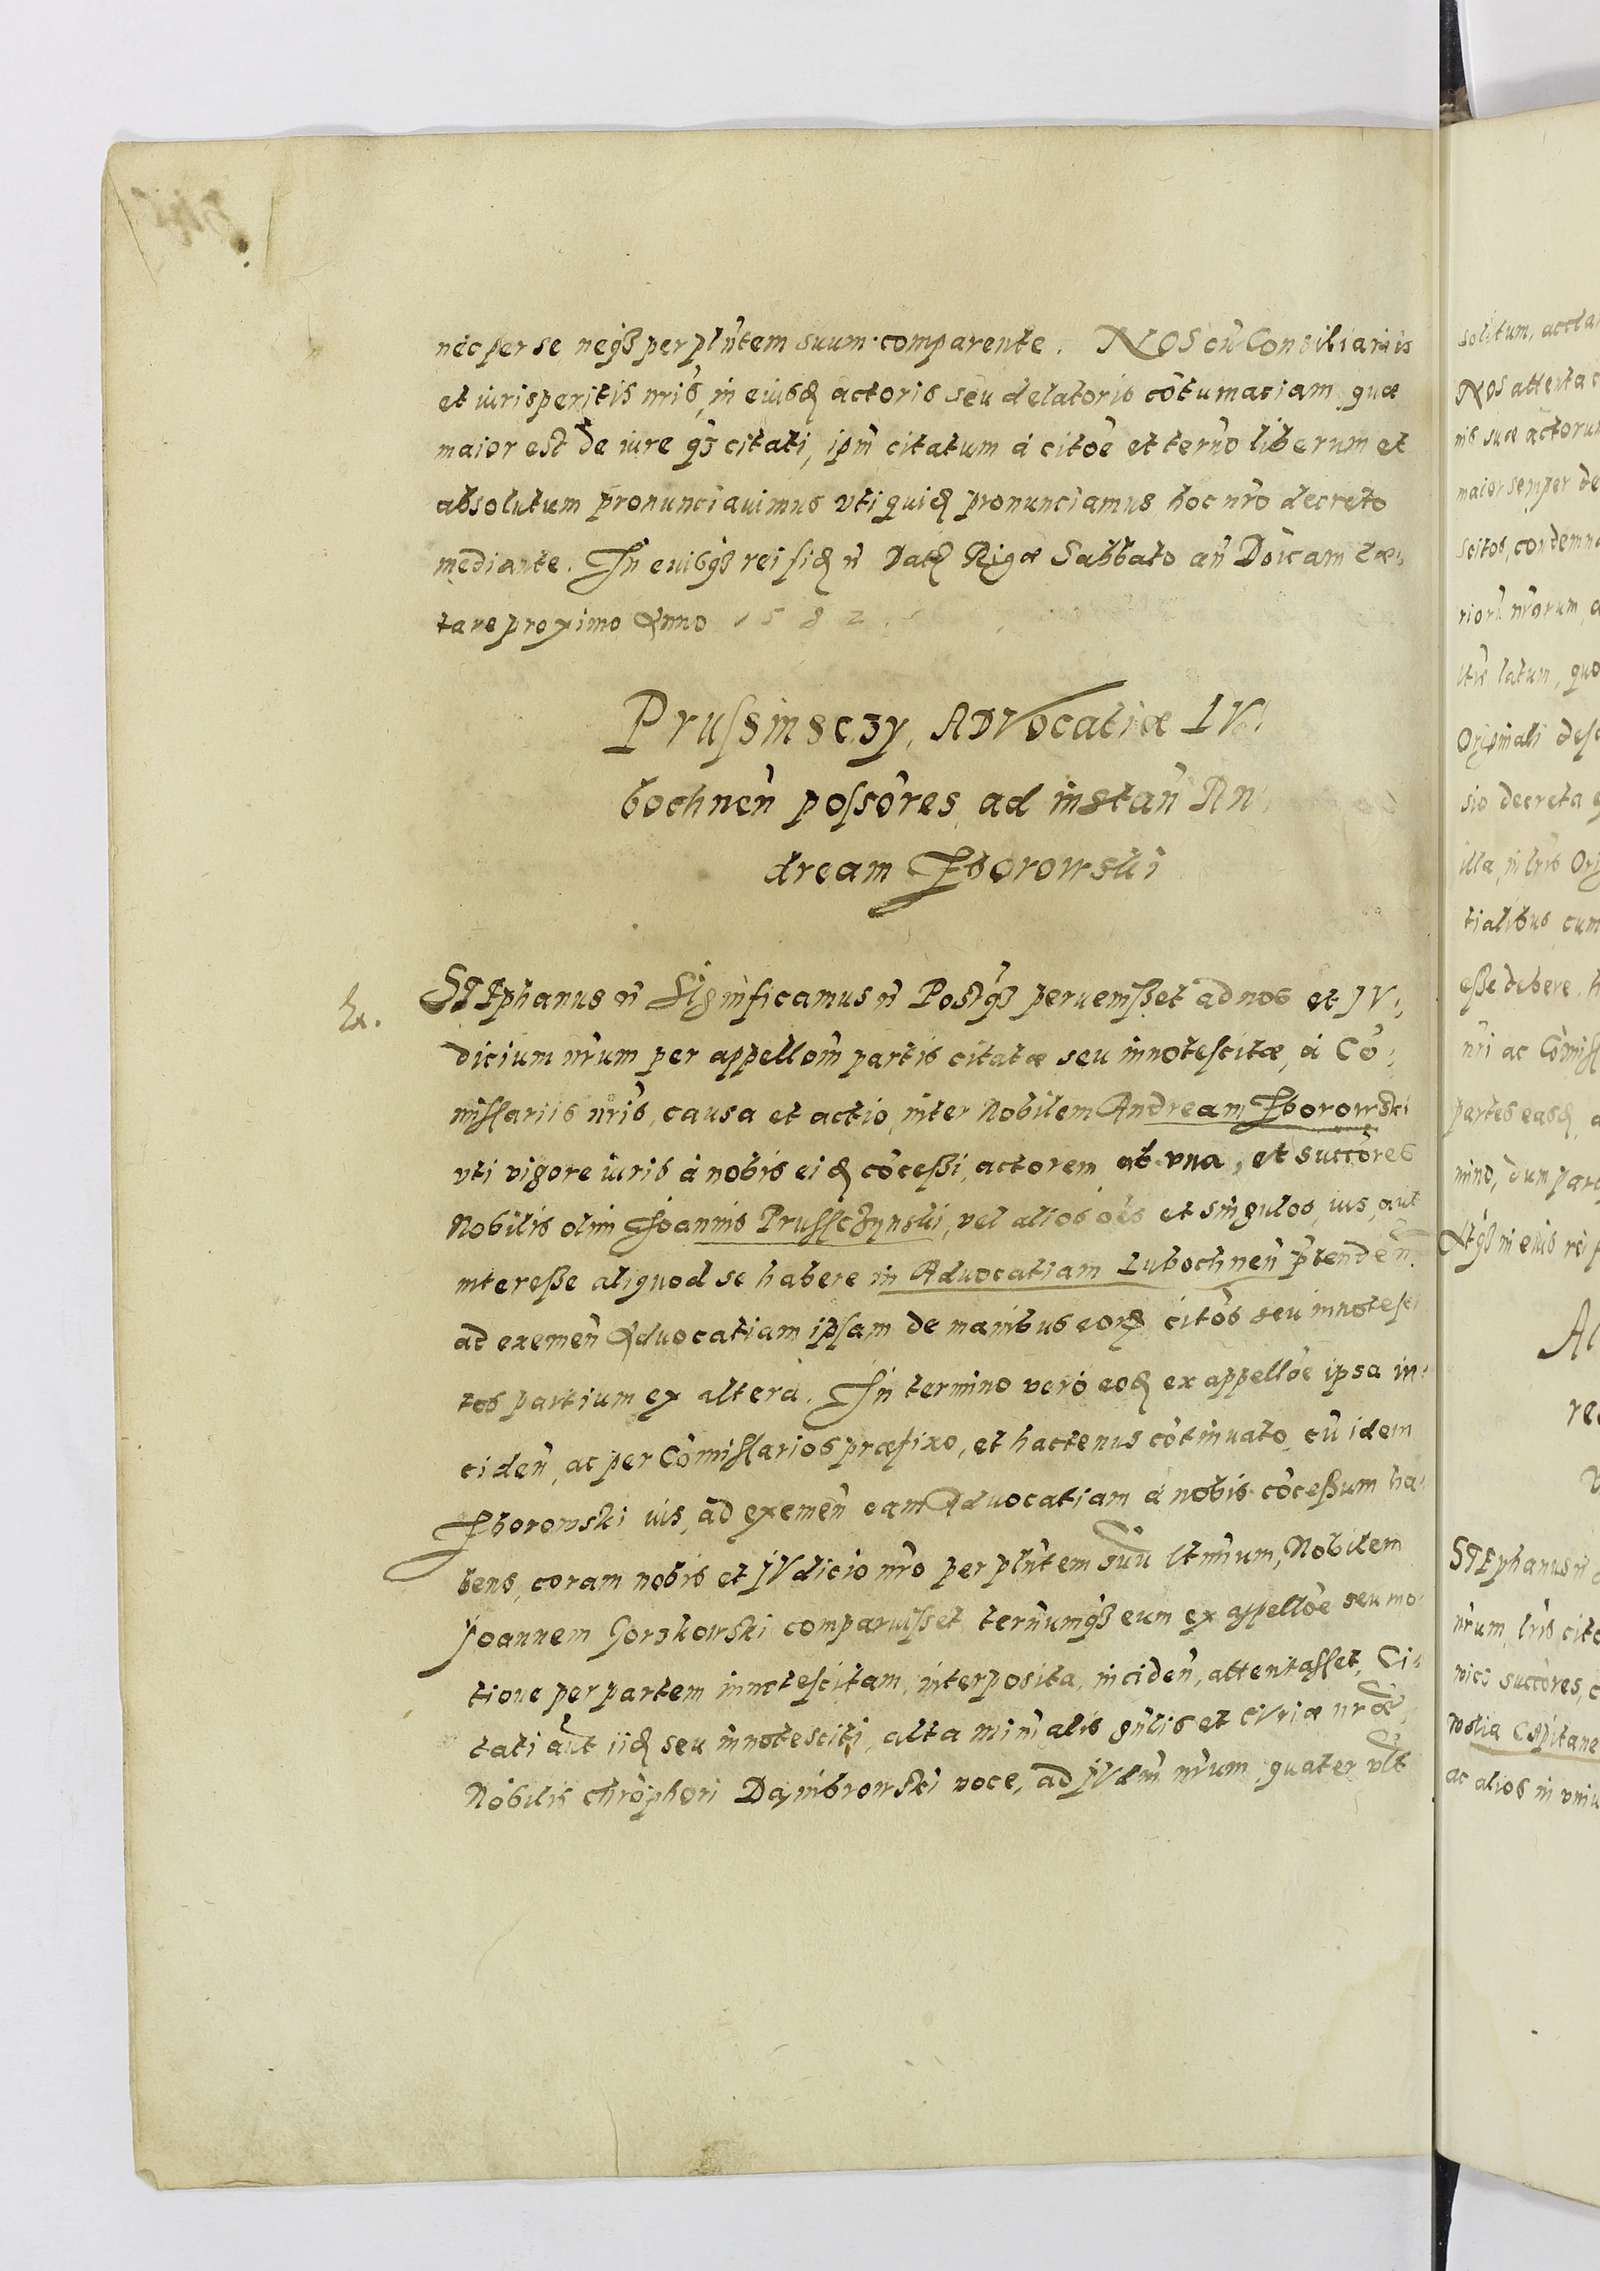 nec per se neqȝ per plñtem suum comparente. NOS cũ Consiliariis
et iurisperitis nris, in eiusꝗ actoris seu delatoris cõtumaciam, quæ
maior est de iure qȝ citati, ipm̃ citatum à citõe et termo liberum et
absolutum pronunciauimus vti quidꝗ pronunciamus hoc nro decreto
mediante. In cuius rei fidꝗ Datꝗ Rigæ Sabbato añ Doicam læ:
tare proximo Anno 1582.
Prussinsczy, ADVocatiæ LV:
bochneñ possores ad instañ An
dream Zborowski
STEphanus ñ Significamus ñ Postqȝ peruenisset ad nos et JV:
dicium nrum per appellom̃ partis citatæ seu innotescitæ, à Cõ:
missariis nris, causa et actio, inter Nobilem Andream Zborowski
vti vigore iuris à nobis eidꝗ cõcessi, actorem ab vna, et succores
Nobilis olim Joannis Prussczynski, vel alios oẽs et singulos, ius, aut
interesse aliquod se habere in Aduocatiam Lubochneñ ptendeñ
ad exemeñ Aduocatiam ipsam de manibus eorꝗ citos seu innotesci
tos partium ex altera. In termino vero eodꝗ ex appelloe ipsa in:
cideñ, ac per Cõmissarios præfixo, et hactenus cõtinuato, cũ idem
Zborowski ius, ad exemeñ eam Aduocatiam à nobis cõcessum ha:
bens, coram nobis et JVdicio nro per plñtem suũ ltimum, Nobilem
Joannem Gorzkowski comparuisset, termumqȝ eum ex appelloe seu mo:
tione per partem innotescitam, interposita, incideñ, attentasset, Ci:
tati aut iidꝗ seu innotesciti, alta minialis gnlis et CVriæ nræ,
Nobilis Chrophori Dambrowski voce, ad JVdm̃ nrum quater vlt
solitum, accla
NOS attenta c
nis suæ actorum
maior semper de
scitos, condemna
riorũ nrorum, a
ltũ latum, quo
Originali desc
sio decreta
illa, in lris Ori
tialibus cum
esse debere, h
nri ac Cõmiss
partes easdꝗ, a
mino, dum par
Atqȝ in eius rei
STEphanus ñ
nrum, lris cito
nici succores, c
Capitane
ac alios in vniu